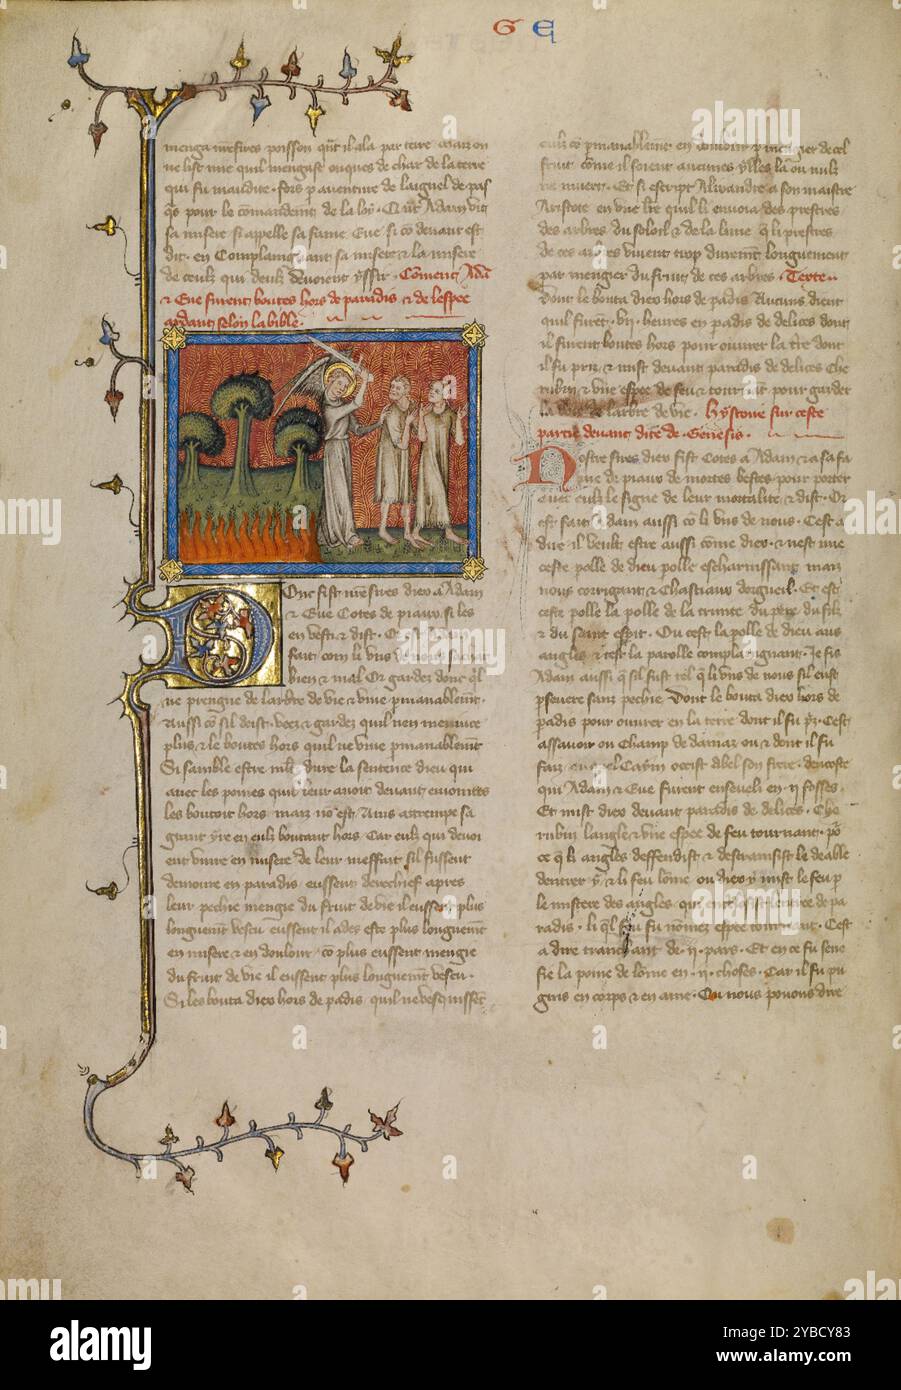 G E
menga nres̄ires poisson qūt il ala par terre
ne list mie quil mengast onques de char de la terre
qui fu maudite. fors p aventure de laignel de pas
qs pour le comādemēt de la loy.
sa misere si appelle sa fame Eue. si cō deuant est
dit. en Complaingnant sa misere & la misere
de ceulz qui deulz deuoient yssir. Cōment Adā
& Eue furent boutes hors de paradis & de lespee
ardant selon la bible.
Donc fist nres̄ires dieu a Adam
& Eue Cotes de piaux. si les
en vesti & dist.
bien & mal. Or gardez donc ql̄
ne prengne de larbre de vie & viue pmanablemēt.
Aussi cō sil deist. veez & gardez quil nen menjuce
plus. & le boutes hors quil ne viue pmanablemēt
Si samble estre mlt̄ dure la sentence dieu qui
auec les poines quil leur auoit deuant
les boutoit hors. maiz nō est. Ains
en eulz boutant hors. Car eulz qui deuoi
ent viure en misere de leur meffait. sil fussent
demoure en paradis. eussent derechief apres
leur pechie mengie du fruit de vie il eussent plus
longuemēt vescu. eussent il ades este plus longuemēt
en misere & en doulour. cō plus eussent mengie
du fruit de vie il eussent plus longuemēt vescu.
Si les bouta dieu hors de padis quil ne vesquissēt
eulz cō pmanablemēt en doulour
fruit. come il soient aucunes ylles la ou nulz
ne muert. Et si escript Alixandre a son maistre
Aristote en vne lr̄e quil li enuoia des prestres
des arbres du soloil & de la lune q̄ li prestres
de ces arbres viuent trop duremēt longuement
par mengier du fruit de ces arbres. Texte.
Dont le bouta dieu hors de padis Aucuns dient
quil furēt .vij. heures en padis de delices dont
il furent boutes hors pour ouurer la tr̄e dont
il fu pris & mist deuant paradis de delices Che
rubin & vne espee de feu & pour garder
la voie de larbre de vie. hystoire sur ceste
partie deuant dite de Genesis.
Nostre sires dieu fist Cotes a Adam & a sa fa
me de piaus de mortes bestes pour porter
auec eulz le signe de leur mortalite & dist. Or
est fait Adam aussi cō li vns de nous. Cest a
dire il veult estre aussi cōme dieu. & nest mie
ceste polle de dieu polle escharnissant maiz
nous corrigant & Chastiant dorgueil. Et est
ceste polle la polle de la trinite du pere du filz
& du saint esperit. Ou cest la polle de dieu aus
angles & est la parolle complaingnant. Je fis
Adam aussi q̄ sil fust tel q̄ li vns de nous sil eust
pseuere sanz pechie. Dont le bouta dieu hors de
padis pour ouurer en la terre dont il fu pris. Cest
assauoir ou Champ de damaz ou & dont il fu
faiz Caym occist abel son frere. dencoste
qui Adam & Eue furent enseueli en .ij. fosses.
Et mist dieu deuant paradis de delices. Che
rubin langle & vne espee de feu tournant. pō
ce q̄ li angles deffendist & destrainsist le deable
dentrer y & li feu lōme ou dieu y mist le feu p
le mistere des angles
radis. li ql̄ feu fu nōmez espee tournant. Cest
a dire tranchant de .ij. pars. Et en ce fu sene
fie la poine de lōme en .ij. choses. Car il fu pu
gnis en corps & en ame. Ou nous pouons dire
alamy
Image ID: 2YBCY83
www.alamy.com